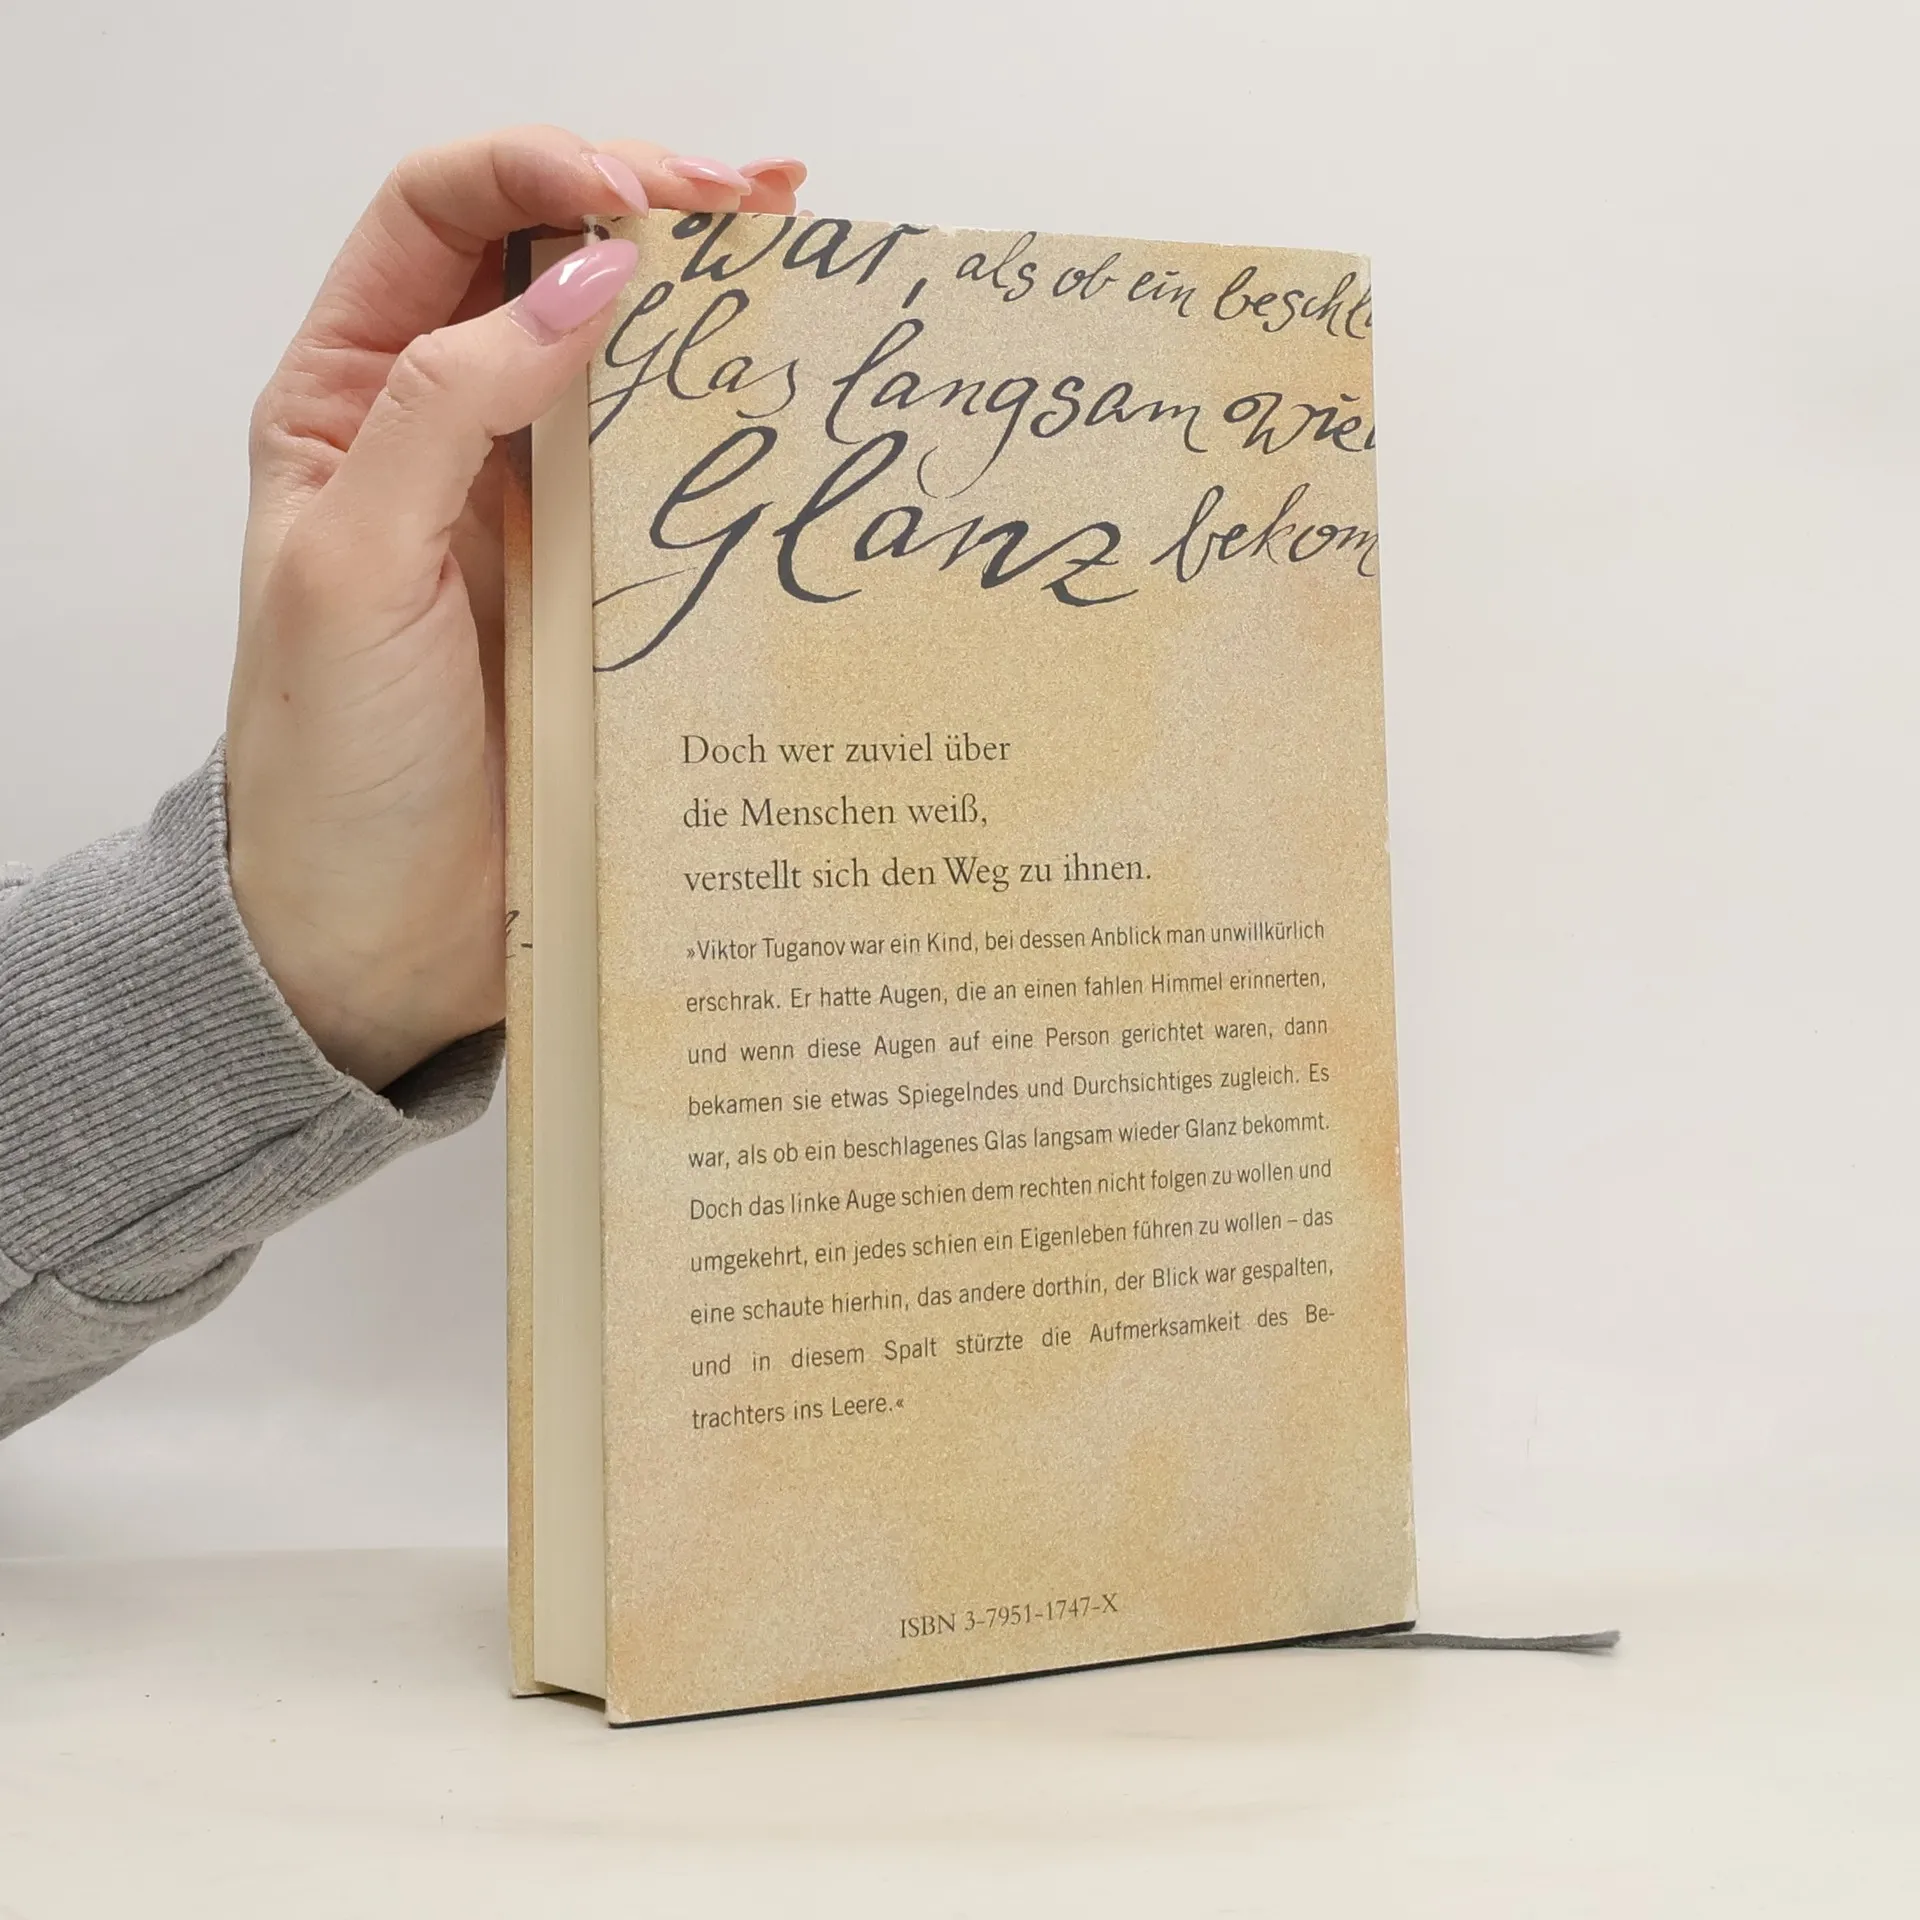 war, als ob ein beschl
Glas langsam wie
Glanz bekom
Doch wer zuviel über
die Menschen weiß,
verstellt sich den Weg zu ihnen.
»Viktor Tuganov war ein Kind, bei dessen Anblick man unwillkürlich
erschrak. Er hatte Augen, die an einen fahlen Himmel erinnerten,
und wenn diese Augen auf eine Person gerichtet waren, dann
bekamen sie etwas Spiegelndes und Durchsichtiges zugleich. Es
war, als ob ein beschlagenes Glas langsam wieder Glanz bekommt.
Doch das linke Auge schien dem rechten nicht folgen zu wollen und
umgekehrt, ein jedes schien ein Eigenleben führen zu wollen – das
eine schaute hierhin, das andere dorthin, der Blick war gespalten,
und in diesem Spalt stürzte die Aufmerksamkeit des Be-
trachters ins Leere.«
ISBN 3-7951-1747-X